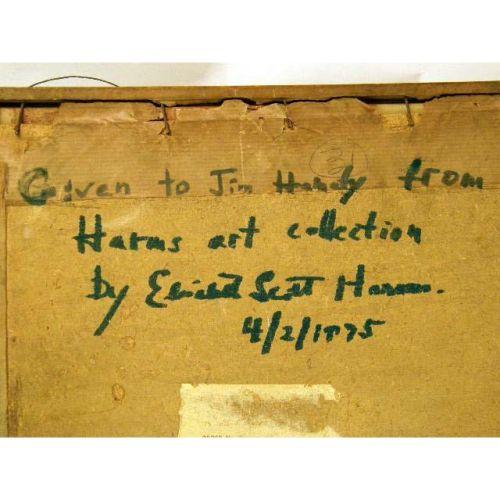 Given to Jim Handy from
Harms art collection
by Elizabeth Scott Harms.
4/2/1975